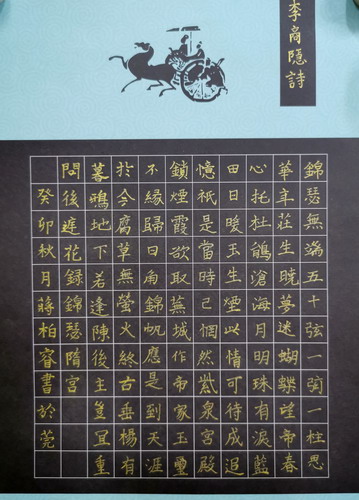 李商隱詩
錦瑟無端五十弦一弦一柱思
華年莊生曉夢迷蝴蝶望帝春
心托杜鵑滄海月明珠有淚藍
田日暖玉生煙此情可待成追
憶祇是當時已惘然紫泉宮殿
鎖煙霞欲取蕪城作帝家玉璽
不緣歸日角錦帆應是到天涯
於今腐草無螢火終古垂楊有
暮鴉地下若逢陳後主豈宜重
問後庭花録錦瑟隋宮
癸卯秋月蔣柏睿書於莞